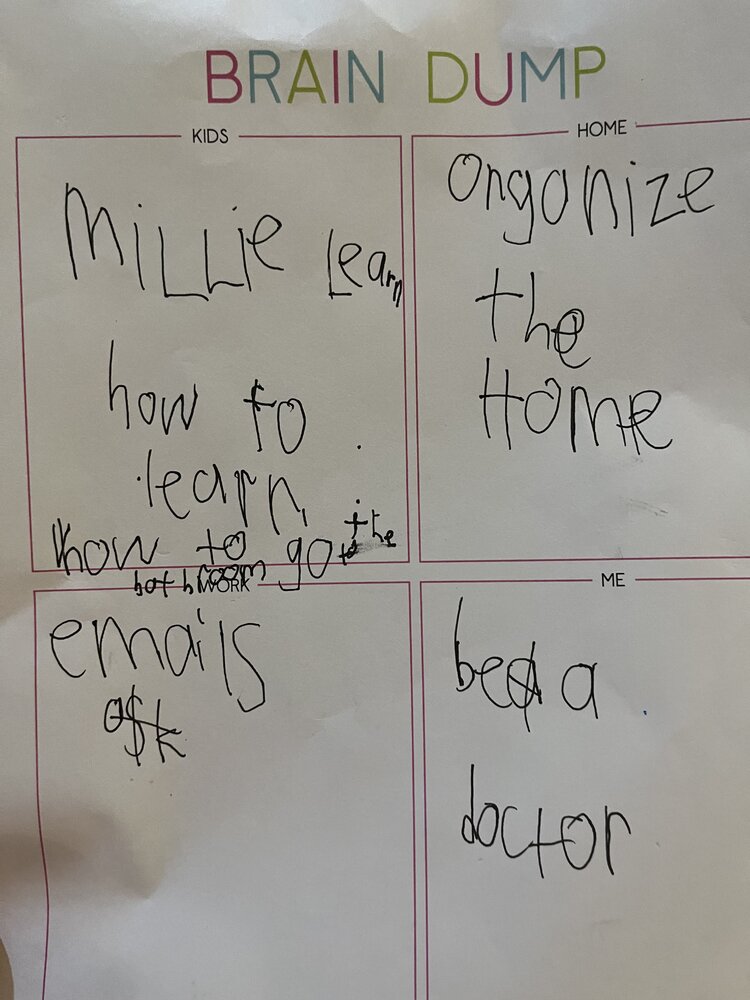 BRAIN DUMP
KIDS
Millie learn
how to
learn
how to go to the
bathroom
HOME
Organize
the
Home
WORK
emails
ask
ME
be a
doctor